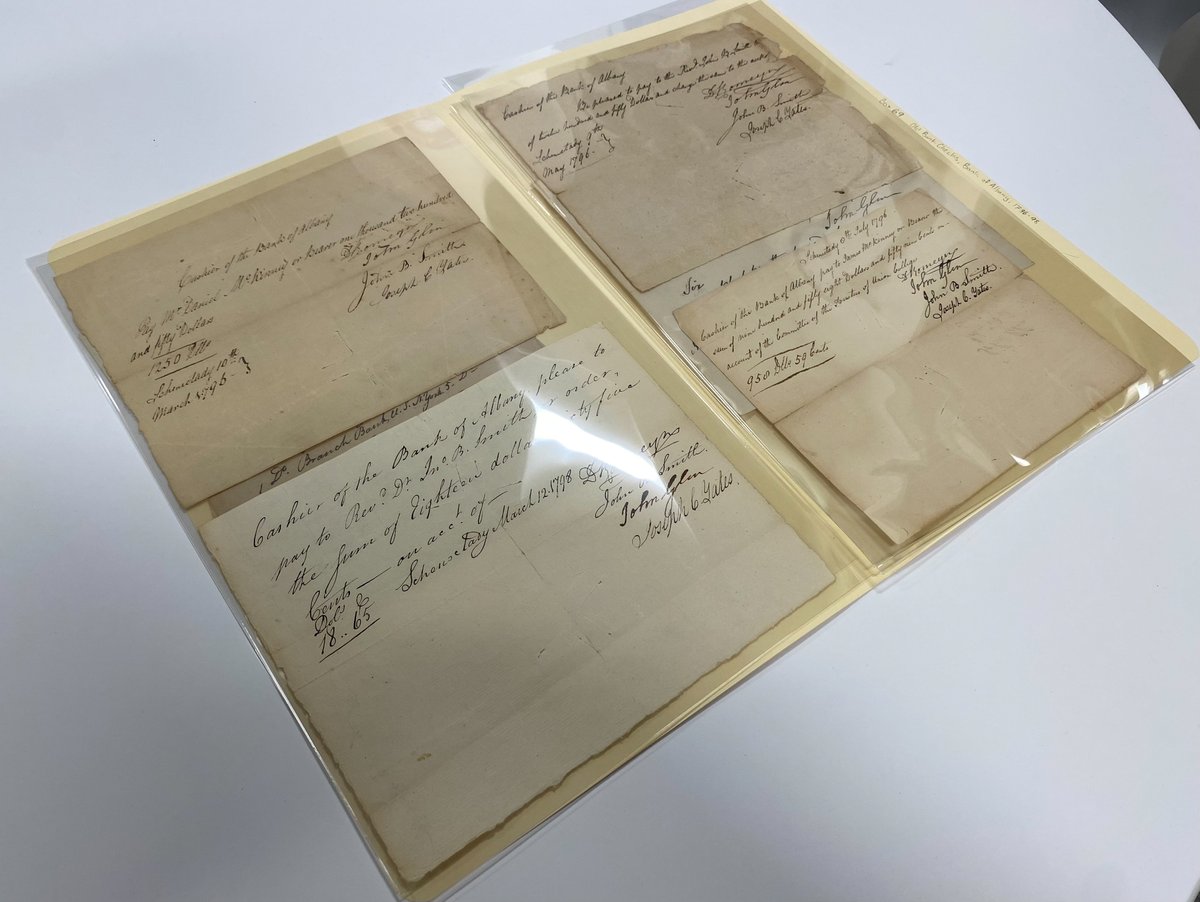 Cashier of the Bank of Albany
Pay Mr Daniel McKinney or Bearer one thousand two hundred
and fifty Dollars
1250 Dlls
Schenectady 10th
March 1796
D Romeyn
John Glen
John B. Smith
Joseph C. Yates.
1 Do Branch Bank U.S. N York 5. D
Cashier of the Bank of Albany please to
pay to Revd Dr Jno B. Smith or order,
the Sum of Eighteen dollars sixty five
Cents — on acct of —
Dols Cs
18.. 65
Schenectady March 12. 1798
D Romeyn
John B. Smith.
John Glen
Joseph C Yates.
Cashier of the Bank of Albany
Be pleased to pay to the Revd John B. Smith
of twelve hundred and fifty Dollars and charge the same to the
Schenectady 9th
May 1796
D Romeyn
John Glen
John B. Smith
Joseph C. Yates.
John Glen
Schenectady 8th July 1796
Cashier of the Bank of Albany pay to James McKinney or Bearer the
sum of nine hundred and fifty eight Dollars and fifty nine Cents on
account of the Committee of the Trustees of Union College
958 Dlls 59 Cents
D Romeyn
John Glen
John B. Smith.
Joseph C. Yates.
Bank Checks, Bank of Albany, 1796-98